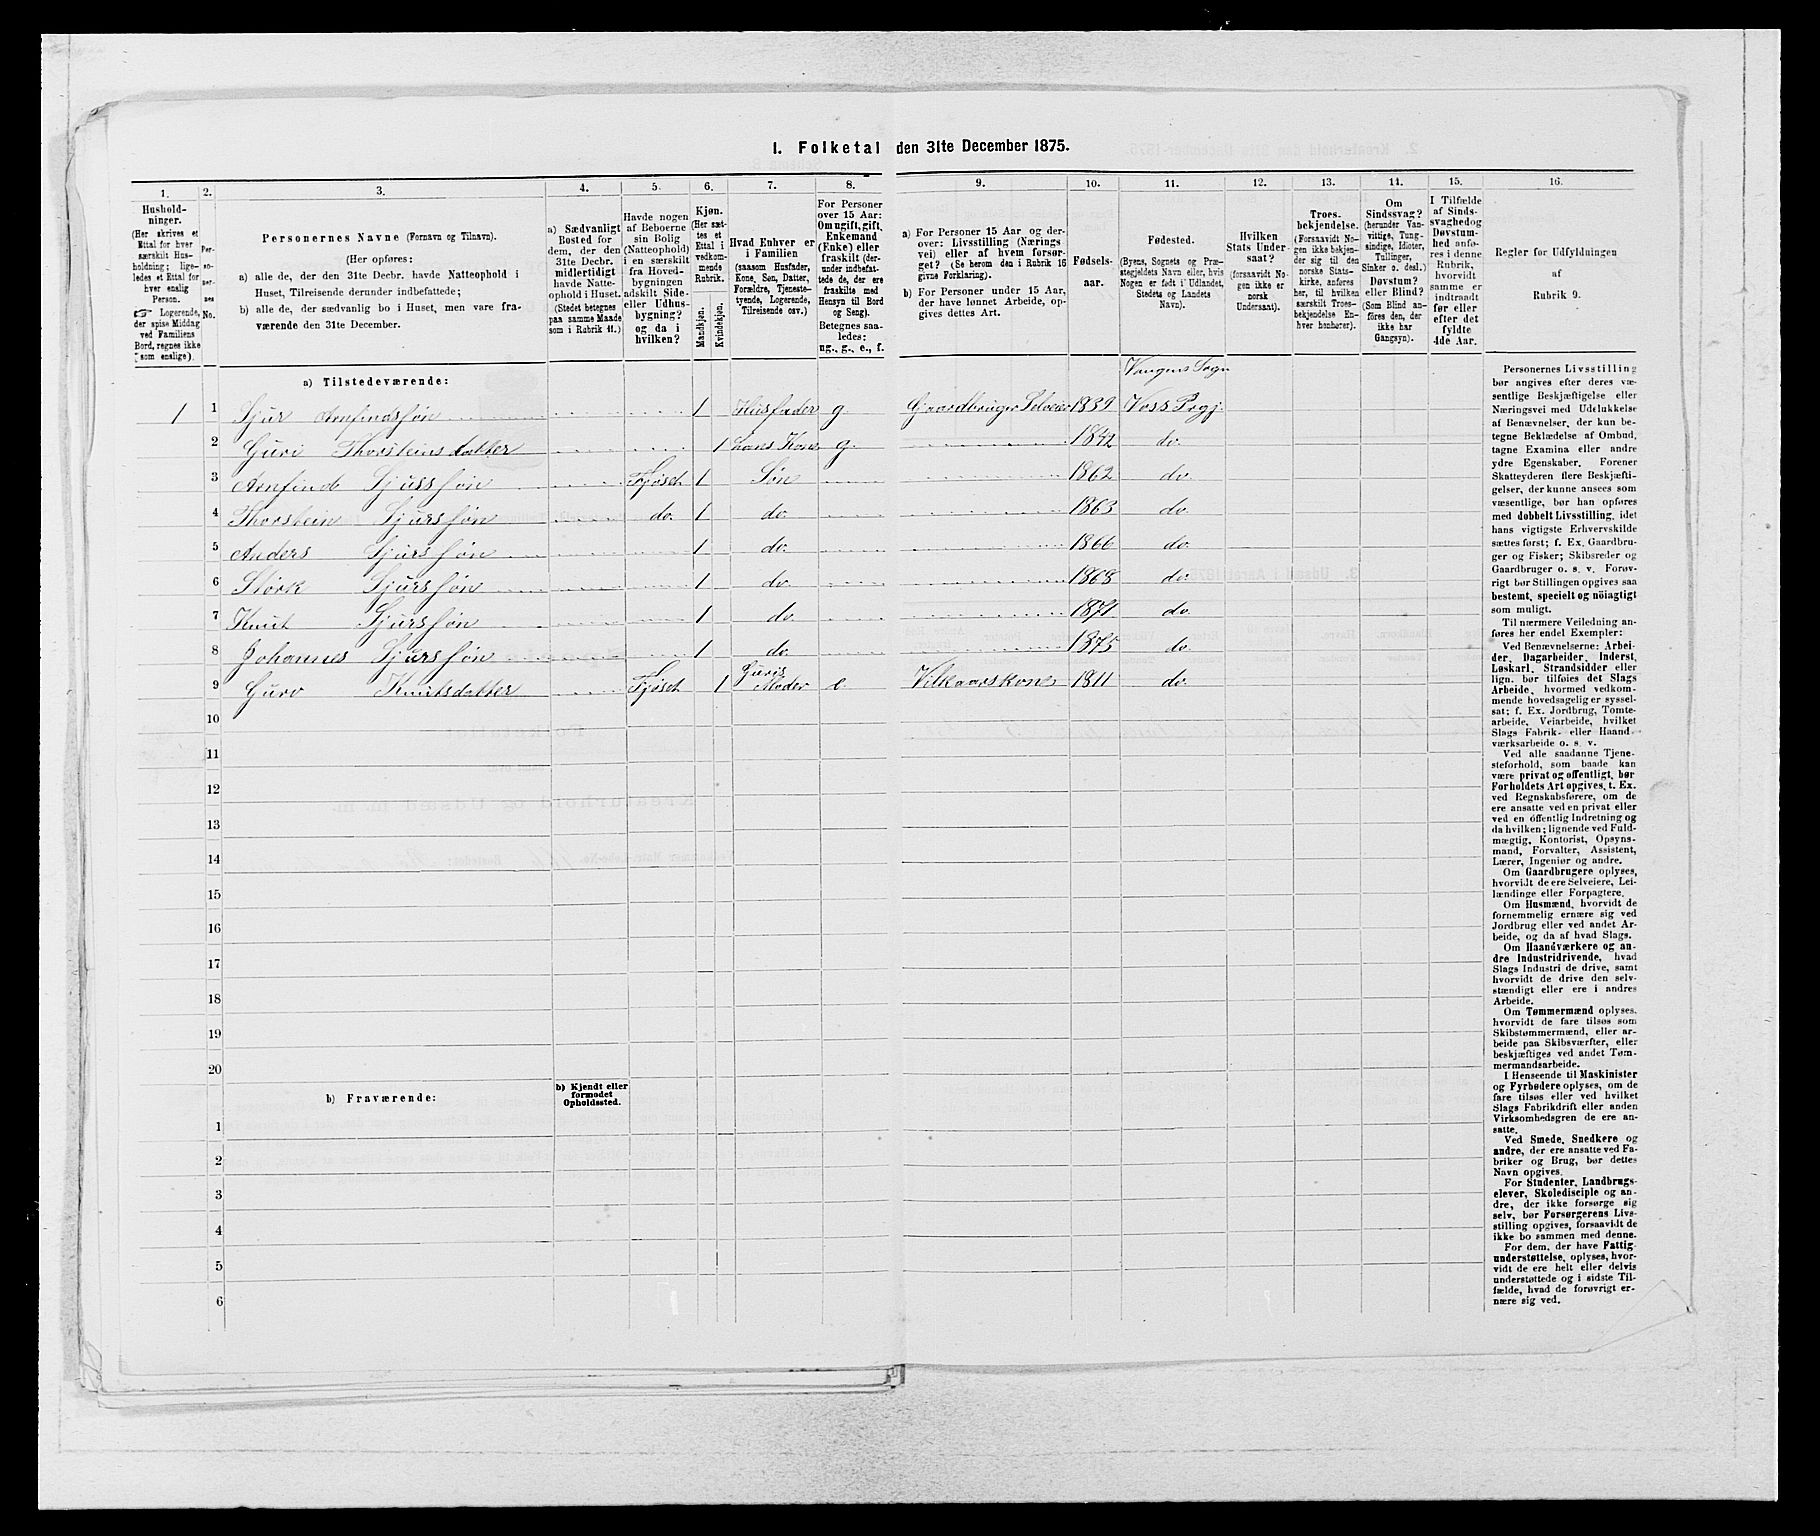 I. Folketal den 31te December 1875.
1. 2. 3. 4. 5. 6. 7. 8. 9. 10. 11. 12. 13. 14. 15. 16.
Hushold-
ninger.
(Her skrives et
Ettal for hver
særskilt Hus-
holdning; lige-
ledes et Ettal for
hver enslig
Person.
☞ Logerende,
der spise Middag
ved Familiens
Bord, regnes ikke
som enslige).
Per-
so-
ner-
nes
No.
Personernes Navne (Fornavn og Tilnavn).
(Her opføres:
a) alle de, der den 31te Decbr. havde Natteophold i
Huset, Tilreisende derunder indbefattede;
b) alle de, der sædvanlig bo i Huset, men vare fra-
værende den 31te December.
a) Sædvanligt
Bosted for
dem, der den
31te Decbr.
midlertidigt
havde Natte-
ophold i Huset.
(Stedet betegnes
paa samme Maade
som i Rubrik 11.)
Havde nogen
af Beboerne
sin Bolig
(Natteophold)
i en særskilt
fra Hoved-
bygningen
adskilt Side-
eller Udhus-
bygning?
og da i
hvilken?
Kjøn.
(Her sæt-
tes et
Ettal i
vedkom-
mende
Rubrik.
Mandkjøn.
Kvindekjøn.
Hvad Enhver er
i Familien
(saasom Husfader,
Kone, Søn, Datter,
Forældre, Tjeneste-
tyende, Logerende,
Tilreisende osv.)
For Personer
over 15 Aar:
Om ugift, gift,
Enkemand
(Enke) eller
fraskilt (der-
under indbefat-
tede de, der ere
fraskilte med
Hensyn til Bord
og Seng).
Betegnes saa-
ledes:
ug., g., e., f.
a) For Personer 15 Aar og der-
over: Livsstilling (Nærings
vei) eller af hvem forsør-
get? (Se herom den i Rubrik 16
givne Forklaring).
b) For Personer under 15 Aar,
der have lønnet Arbeide, op-
gives dettes Art.
Fødsels-
aar.
Fødested.
(Byens, Sognets og Præ-
stegjeldets Navn eller, hvis
Nogen er født i Udlandet,
Stedets og Landets
Navn).
Hvilken
Stats Under-
saat?
(forsaavidt No-
gen ikke er
norsk
Undersaat).
Troes-
bekjendelse.
(Forsaavidt No-
gen ikke bekjen-
der sig til den
norske Stats-
kirke, anføres
her, til hvilken
særskilt Troes-
bekjendelse En-
hver henhører).
Om
Sindssvag?
(herunder Van-
vittige, Tung-
sindige, Idioter,
Tullinger,
Sinker o. desl.)
Døvstum?
eller Blind?
(Som Blind an-
føres den, der
ikke har
Gangsyn).
I Tilfælde
af Sinds-
svaghed og
Døvstum-
hed anfø-
res i denne
Rubrik,
hvorvidt
samme er
indtraadt
før eller
efter det
fyldte
4de Aar.
Regler for Udfyldningen
af
Rubrik 9.
a) Tilstedeværende:
Vangens Sogn
1 1 Sjur Arnfindssøn 1 Husfader g. Gaardbruger Selveier 1839 Voss Prgj.
2 Guri Thorsteinsdatter 1 hans Kone g. 1842 do.
3 Arnfind Sjurssøn Fjøset 1 Søn 1862 do.
4 Thorstein Sjurssøn do. 1 do. 1863 do.
5 Anders Sjurssøn 1 do. 1866 do.
6 Størk Sjurssøn 1 do. 1868 do.
7 Knut Sjurssøn 1 do. 1871 do.
8 Johannes Sjurssøn 1 do. 1875 do.
9 Guro Knutsdatter Fjøset 1 Guris Moder e. Vilkaarskone 1811 do.
10
11
12
13
14
15
16
17
18
19
20
b) Fraværende:
b) Kjendt eller
formodet
Opholdssted.
1
2
3
4
5
6
Personernes Livsstilling
bør angives efter deres væ-
sentlige Beskjæftigelse eller
Næringsvei med Udelukkelse
af Benævnelser, der kun be-
tegne Beklædelse af Ombud,
tagne Examina eller andre
ydre Egenskaber. Forener
Skatteyderen flere Beskjæfti-
gelser, der kunne ansees som
væsentlige, bør han opføres
med dobbelt Livsstilling, idet
hans vigtigste Erhvervskilde
sættes først; f. Ex. Gaardbru-
ger og Fisker; Skibsreder og
Gaardbruger o. s. v. Forøv-
rigt bør Stillingen opgives saa
bestemt, specielt og nöiagtigt
som muligt.
Til nærmere Veiledning an-
føres her endel Exempler:
Ved Benævnelserne: Arbei-
der, Dagarbeider, Inderst,
Løskarl, Strandsidder eller
lign. bør tilføies det Slags
Arbeide, hvormed vedkom-
mende hovedsagelig er syssel-
sat; f. Ex. Jordbrug, Tomte-
arbeide, Veiarbeide, hvilket
Slags Fabrik- eller Haand-
værksarbeide o. s. v.
Ved alle saadanne Tjene-
steforhold, som baade kan
være privat og offentligt, bør
Forholdets Art opgives, t. Ex.
ved Regnskabsførere, om de
ere ansatte ved en privat eller
ved en offentlig Indretning og
da hvilken; lignende ved Fuld-
mægtig, Kontorist, Opsyns-
mand, Forvalter, Assistent,
Lærer, Ingeniør og andre.
Om Gaardbrugere oplyses,
hvorvidt de ere Selveiere, Lei-
lændinge eller Forpagtere.
Om Husmænd, hvorvidt de
fornemmelig ernære sig ved
Jordbrug eller ved andet Ar-
beide, og da af hvad Slags.
Om Haandværkere og an-
dre Industridrivende, hvad
Slags Industri de drive, samt
hvorvidt de drive den selv-
stændigt eller ere i andres
Arbeide.
Om Tømmermænd oplyses,
hvorvidt de fare tilsøs som
Skibstømmermænd, eller ar-
beide paa Skibsværfter, eller
beskjæftiges ved andet Tøm-
mermandsarbeide.
I Henseende til Maskinister
og Fyrbødere oplyses, om de
fare tilsøs eller ved hvilket
Slags Fabrikdrift eller anden
Virksomhedsgren de ere an-
satte.
Ved Smede, Snedkere og
andre, der ere ansatte ved Fa-
briker og Brug, bør dettes
Navn opgives.
For Studenter, Landbrugs-
elever, Skoledisciple og an-
dre, der ikke forsørge sig
selv, bør Forsørgerens Livs-
stilling opgives, forsaavidt de
ikke bo sammen med denne.
For dem, der have Fattig-
understøttelse, oplyses, hvor-
vidt de ere helt eller delvis
understøttede og i sidste Til-
fælde, hvad de forøvrigt er-
nære sig ved.